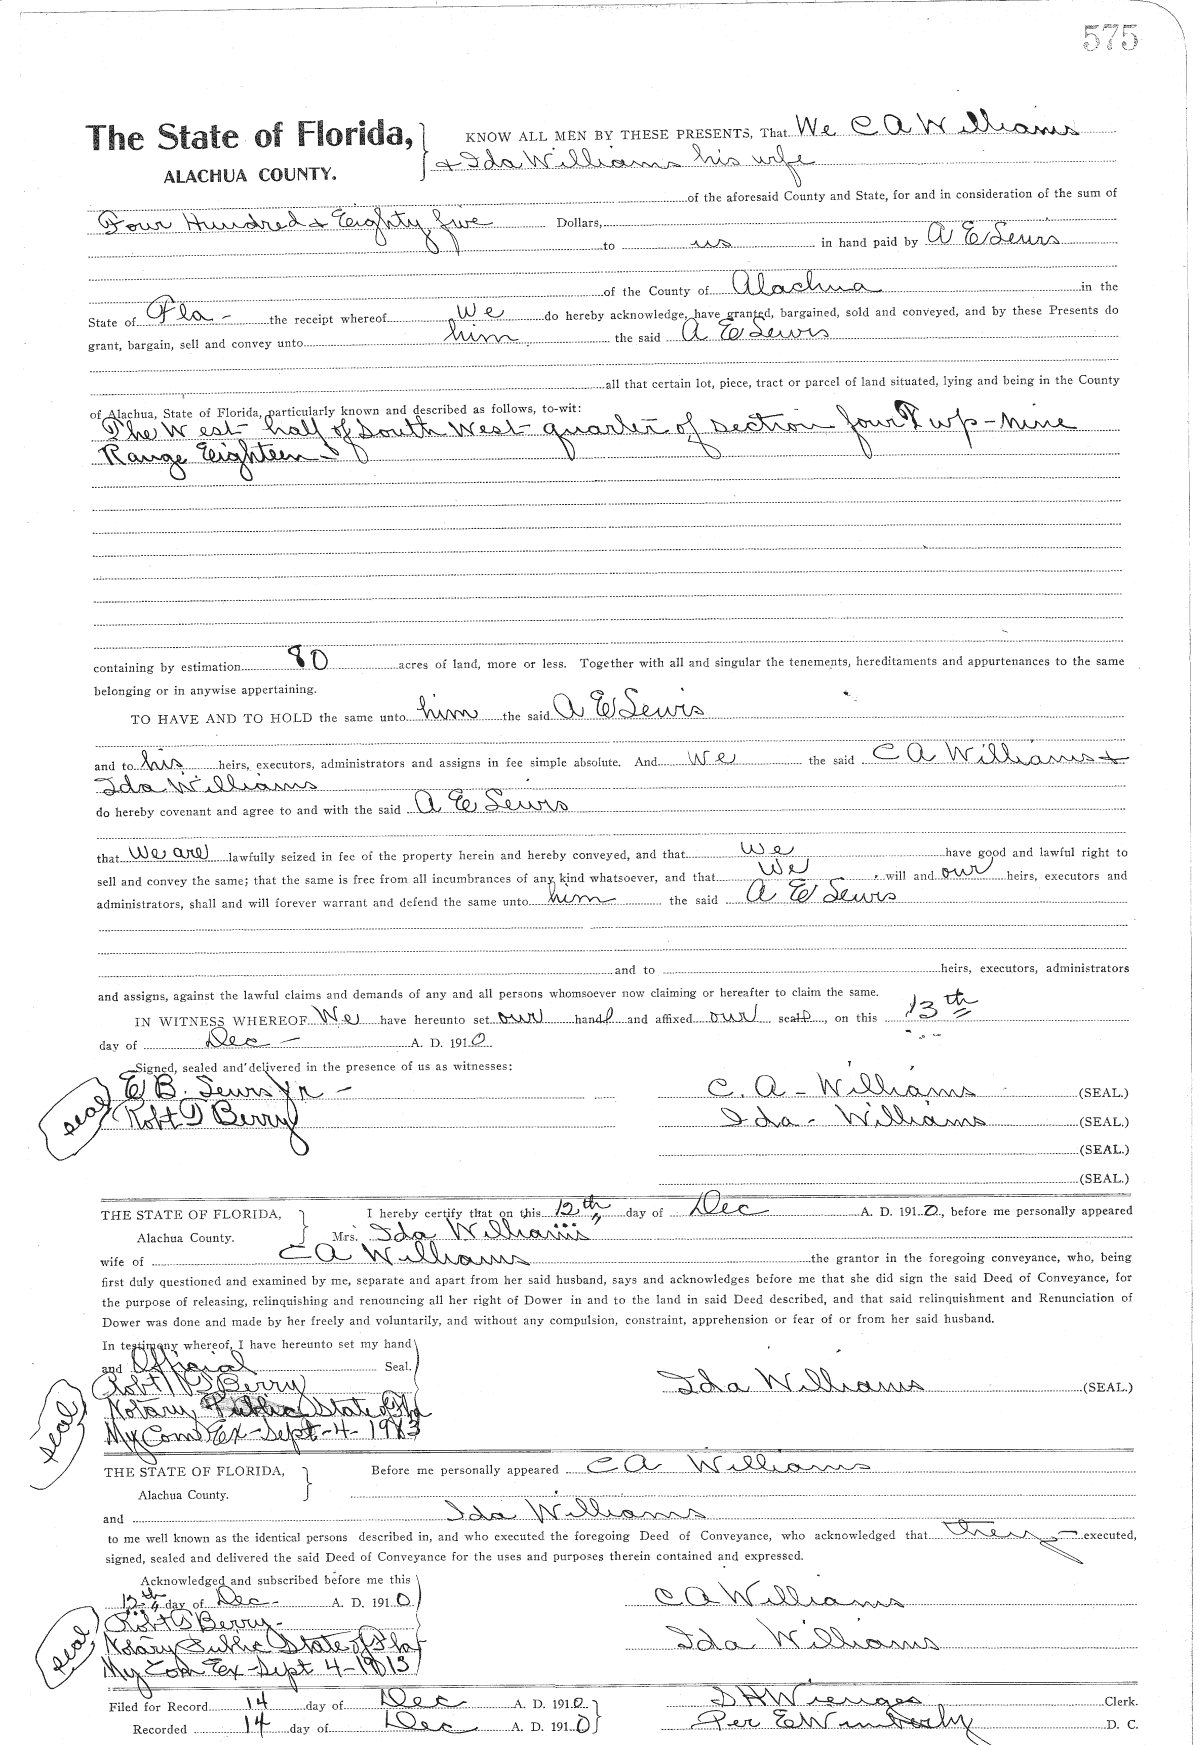 575
The State of Florida, KNOW ALL MEN BY THESE PRESENTS, That We C A Williams
ALACHUA COUNTY. & Ida Williams his wife
of the aforesaid County and State, for and in consideration of the sum of
Four Hundred & Eighty five Dollars,
to us in hand paid by A E Lewis
of the County of Alachua in the
State of Fla - the receipt whereof We do hereby acknowledge, have granted, bargained, sold and conveyed, and by these Presents do
grant, bargain, sell and convey unto him the said A E Lewis
all that certain lot, piece, tract or parcel of land situated, lying and being in the County
of Alachua, State of Florida, particularly known and described as follows, to-wit:
The West half of South West quarter of section four Twp - Nine
Range Eighteen
containing by estimation 80 acres of land, more or less. Together with all and singular the tenements, hereditaments and appurtenances to the same
belonging or in anywise appertaining.
TO HAVE AND TO HOLD the same unto him the said A E Lewis
and to his heirs, executors, administrators and assigns in fee simple absolute. And We the said C A Williams &
Ida Williams
do hereby covenant and agree to and with the said A E Lewis
that We are lawfully seized in fee of the property herein and hereby conveyed, and that We have good and lawful right to
sell and convey the same; that the same is free from all incumbrances of any kind whatsoever, and that We will and our heirs, executors and
administrators, shall and will forever warrant and defend the same unto him the said A E Lewis
and to heirs, executors, administrators
and assigns, against the lawful claims and demands of any and all persons whomsoever now claiming or hereafter to claim the same.
IN WITNESS WHEREOF We have hereunto set our hand and affixed our seal, on this 13th
day of Dec - A. D. 1910.
Signed, sealed and delivered in the presence of us as witnesses:
E B. Lewis Jr - C. A - Williams (SEAL.)
seal Robt T Berry Ida - Williams (SEAL.)
(SEAL.)
(SEAL.)
THE STATE OF FLORIDA, I hereby certify that on this 12th day of Dec A. D. 1910., before me personally appeared
Alachua County. Mrs. Ida Williams
wife of C A Williams the grantor in the foregoing conveyance, who, being
first duly questioned and examined by me, separate and apart from her said husband, says and acknowledges before me that she did sign the said Deed of Conveyance, for
the purpose of releasing, relinquishing and renouncing all her right of Dower in and to the land in said Deed described, and that said relinquishment and Renunciation of
Dower was done and made by her freely and voluntarily, and without any compulsion, constraint, apprehension or fear of or from her said husband.
In testimony whereof, I have hereunto set my hand
and Official Seal.
Robt T Berry Ida Williams (SEAL.)
seal Notary Public State of Fla
My Com Ex - Sept - 4 - 1913
THE STATE OF FLORIDA, Before me personally appeared C A Williams
Alachua County.
and Ida Williams
to me well known as the identical persons described in, and who executed the foregoing Deed of Conveyance, who acknowledged that they executed,
signed, sealed and delivered the said Deed of Conveyance for the uses and purposes therein contained and expressed.
Acknowledged and subscribed before me this
12th day of Dec - A. D. 1910. C A Williams
Robt T Berry -
seal Notary Public State of Fla Ida Williams
My Com Ex - Sept 4 - 1913
Filed for Record 14 day of Dec A. D. 1910. S H Wienges Clerk.
Recorded 14 day of Dec A. D. 1910 Per E Wimberly D. C.